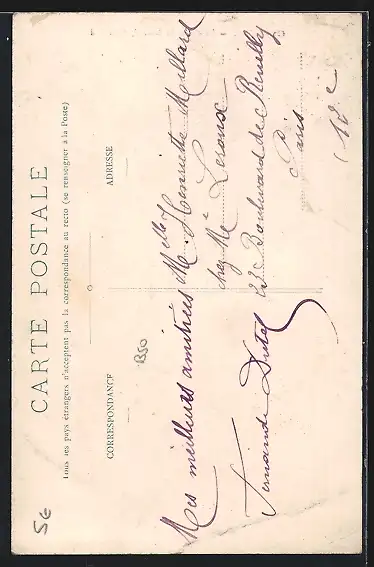 CARTE POSTALE
Tous les pays étrangers n'acceptent pas la correspondance au recto (se renseigner à la Poste)
CORRESPONDANCE
ADRESSE
B50
5€
Mes meilleurs amitiées
Fernande Dutel
Melle Henriette Maillard
chez Me Leroux
Boulevard de Reuilly
Paris
12e